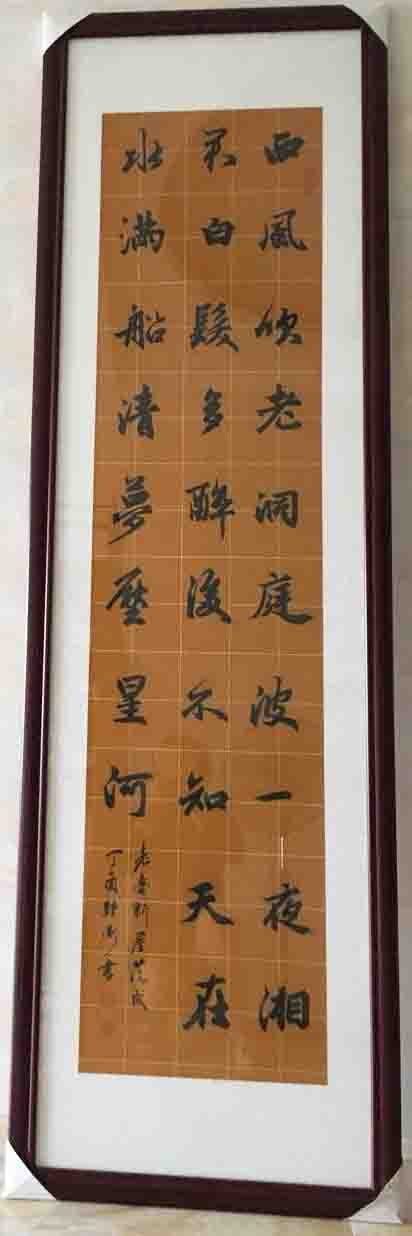 西風吹老洞庭波一夜湘
君白髮多醉後不知天在
水滿船清夢壓星河
新屋落成
丁酉書